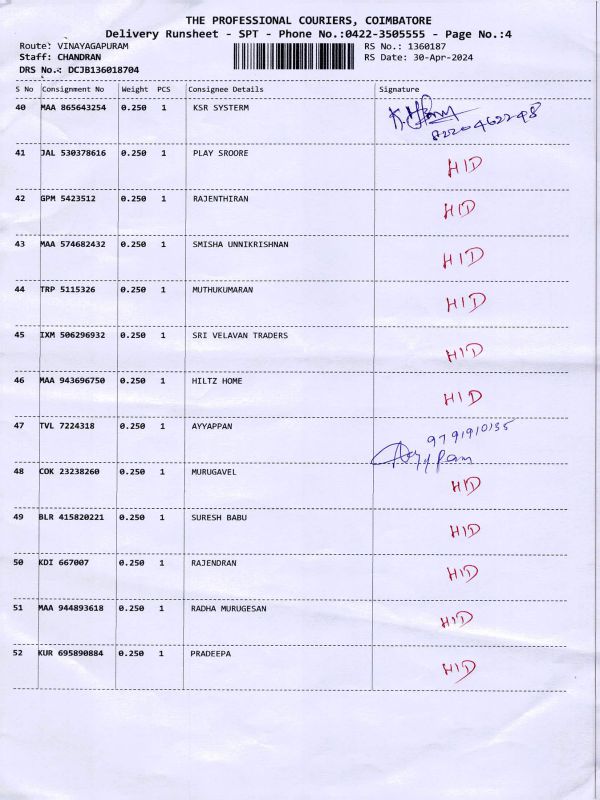 THE PROFESSIONAL COURIERS, COIMBATORE
Delivery Runsheet - SPT - Phone No.:0422-3505555 - Page No.:4
Route: VINAYAGAPURAM RS No.: 1360187
Staff: CHANDRAN RS Date: 30-Apr-2024
DRS No.: DCJB136018704
S No Consignment No Weight PCS Consignee Details Signature
40 MAA 865643254 0.250 1 KSR SYSTERM
8220462248
41 JAL 530378616 0.250 1 PLAY SROORE HID
42 GPM 5423512 0.250 1 RAJENTHIRAN HID
43 MAA 574682432 0.250 1 SMISHA UNNIKRISHNAN HID
44 TRP 5115326 0.250 1 MUTHUKUMARAN HID
45 IXM 506296932 0.250 1 SRI VELAVAN TRADERS HID
46 MAA 943696750 0.250 1 HILTZ HOME HID
47 TVL 7224318 0.250 1 AYYAPPAN 9791910135
48 COK 23238260 0.250 1 MURUGAVEL HID
49 BLR 415820221 0.250 1 SURESH BABU HID
50 KDI 667007 0.250 1 RAJENDRAN HID
51 MAA 944893618 0.250 1 RADHA MURUGESAN HID
52 KUR 695890884 0.250 1 PRADEEPA HID